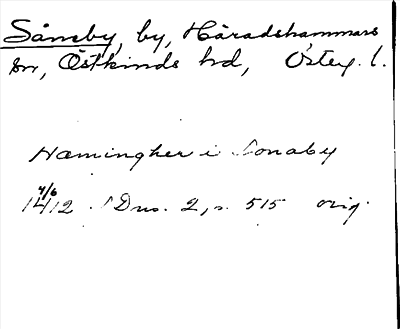 Sånsby, by, Häradshammars
sn, Östkinds hd, Österg. l.
Hæmingher i Sonaby
4/6
1412 . Dns. 2, s. 515 orig.